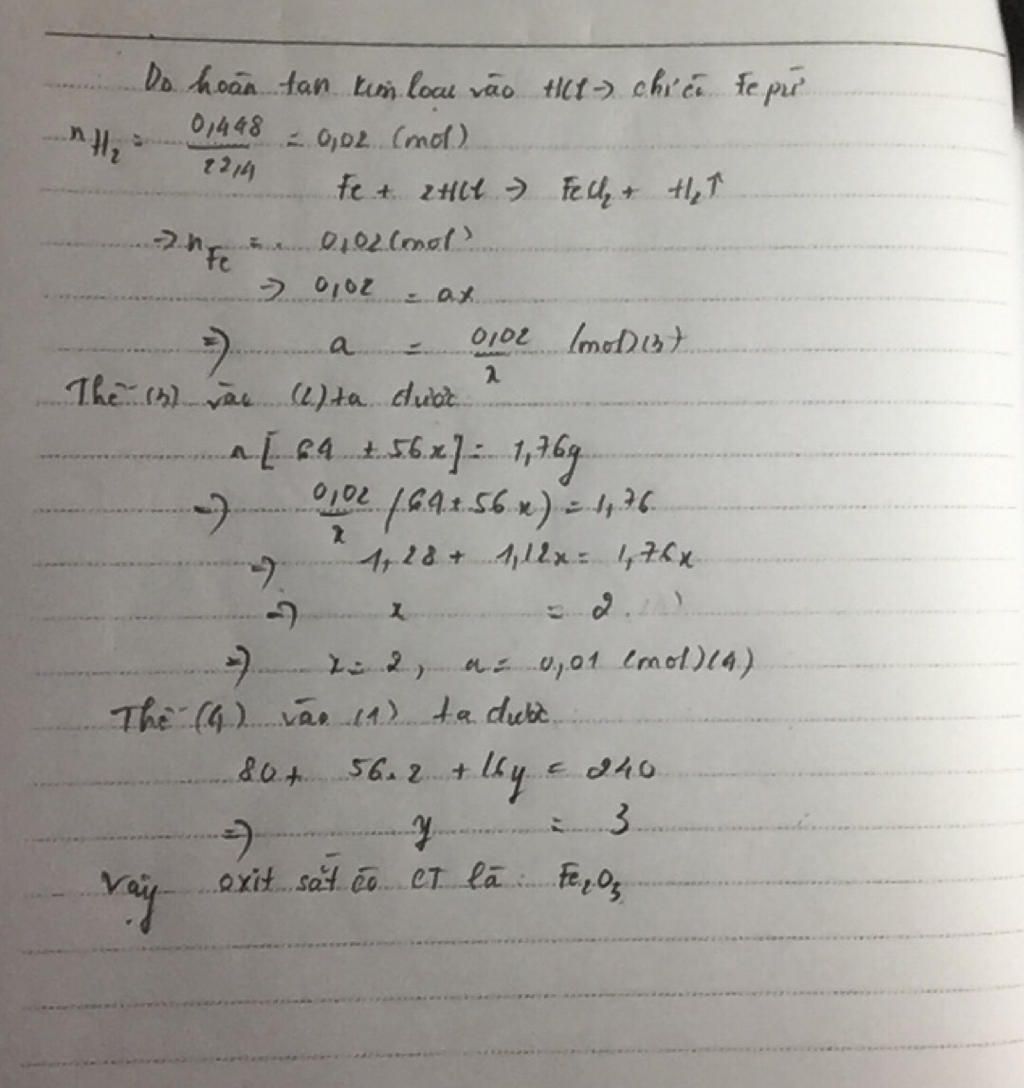 Do hoàn tan kim loại vào HCl → chỉ có Fe pứ
nH₂ = 0,448/22,4 = 0,02 (mol)
Fe + 2HCl → FeCl₂ + H₂↑
→ nFe = 0,02 (mol)
→ 0,02 = ax
⇒ a = 0,02/x (mol) (3)
Thế (3) vào (2) ta được
a[64 + 56x] = 1,76g
⇒ 0,02/x (64 + 56x) = 1,76
⇒ 1,28 + 1,12x = 1,76x
⇒ x = 2
⇒ x = 2, a = 0,01 (mol) (4)
Thế (4) vào (1) ta được
80 + 56.2 + 16y = 240
⇒ y = 3
Vậy oxit sắt có CT là: Fe₂O₃